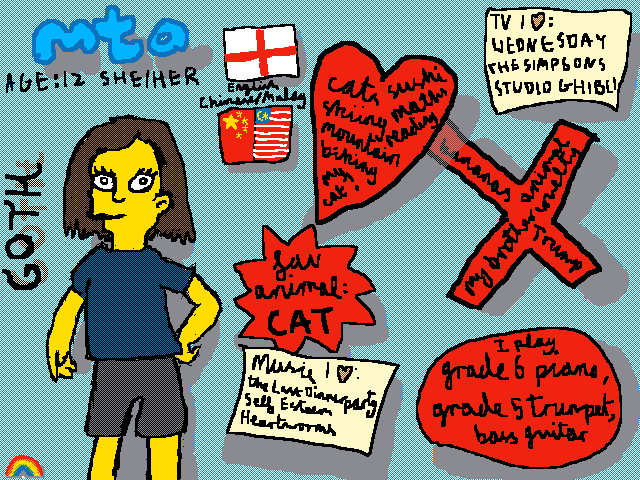 mta
AGE:12 SHE/HER
GOTH
English
Chinese/Malay
cats sushi
skiing maths
reading
mountain
biking
my
cat!
TV I ♡:
WEDNESDAY
THE SIMPSONS
STUDIO GHIBLI
animal
my brother
Trump
fav
animal:
CAT
Music I ♡:
the Last Dinner party
Self Esteem
Heartworms
I play
grade 6 piano,
grade 5 trumpet,
bass guitar